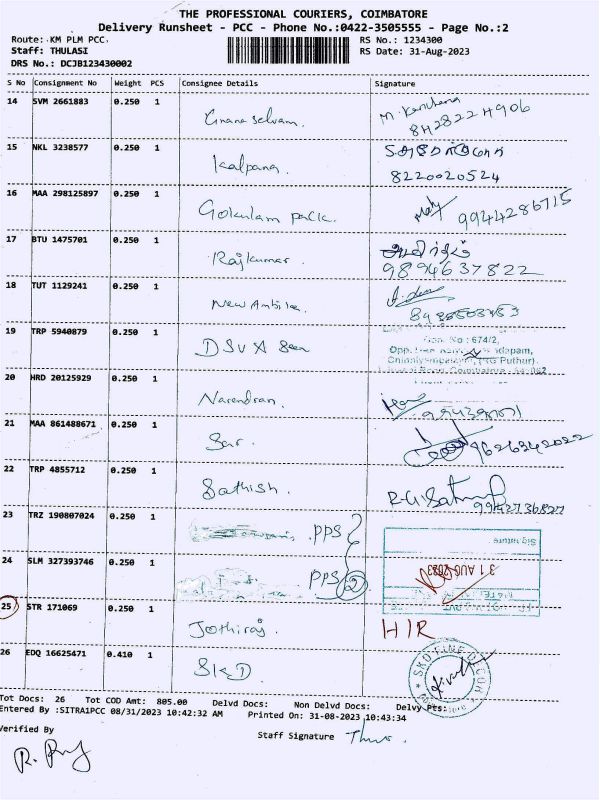 THE PROFESSIONAL COURIERS, COIMBATORE
Delivery Runsheet - PCC - Phone No.:0422-3505555 - Page No.:2
Route: KM PLM PCC
RS No.: 1234300
Staff: THULASI
RS Date: 31-Aug-2023
DRS No.: DCJB123430002
S No Consignment No Weight PCS Consignee Details Signature
14 SVM 2661883 0.250 1 Gnana selvam. M. Kanchana
8428224906
15 NKL 3238577 0.250 1 Kalpana.
8220020524
16 MAA 298125897 0.250 1 Gokulam pack. 9944286715
17 BTU 1475701 0.250 1 Rajkumar.
9894637822
18 TUT 1129241 0.250 1 New
19 TRP 5940879 0.250 1 DSV A
No : 674/2,
Opp.
20 HRD 20125929 0.250 1 Narendran.
21 MAA 861488671 0.250 1 Sar. 9626342022
22 TRP 4855712 0.250 1 Sathish. 9942736827
23 TRZ 190807024 0.250 1 PPS
Signature
24 SLM 327393746 0.250 1 PPS 2
31 AUG 2023
25 STR 171069 0.250 1 Jothiraj. HIR
26 EDQ 16625471 0.410 1 SKD
Tot Docs: 26 Tot COD Amt: 805.00 Delvd Docs: Non Delvd Docs: Delvy Pts:
Entered By :SITRA1PCC 08/31/2023 10:42:32 AM Printed On: 31-08-2023 10:43:34
Verified By
Staff Signature